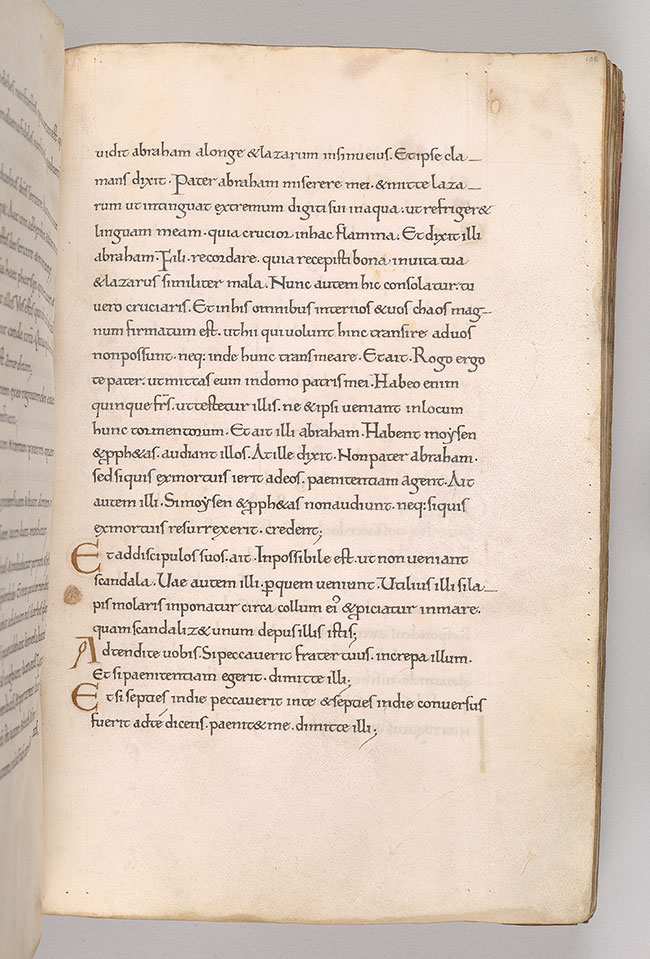 uidit abraham alonge & lazarum insinu eius. Et ipse cla
mans dixit. Pater abraham miserere mei. & mitte laza
rum ut intinguat extremum digiti sui in aqua. ut refriger&
linguam meam. quia crucior in hac flamma. Et dixit illi
abraham. Fili. recordare. quia recepisti bona in uita tua
& lazarus similiter mala. Nunc autem hic consolatur. tu
uero cruciaris. Et in his omnibus inter nos & uos chaos mag-
num firmatum est. ut hii qui uolunt hinc transire ad uos
non possunt. neq: inde huc transmeare. Et ait. Rogo ergo
te pater. ut mittas eum in domo patris mei. Habeo enim
quinque frs. ut testetur illis. ne & ipsi ueniant in locum
hunc tormentorum. Et ait illi abraham. Habent moysen
& pph&as. audiant illos. At ille dixit. Non pater abraham.
sed si quis ex mortuis ierit ad eos. paenitentiam agent. Ait
autem illi. Si moysen & pph&as non audiunt. neq: si quis
ex mortuis resurrexerit. credent;
Et ad discipulos suos. ait. Inpossibile est. ut non ueniant
scandala. Uae autem illi. p quem ueniunt. Utilius illi si la
pis molaris inponatur circa collum ei' & piciatur in mare.
quam scandaliz& unum de pusillis istis;
Adtendite uobis. Si peccauerit frater tuus. increpa illum.
Et si paenitentiam egerit. dimitte illi;
Et si septies in die peccauerit in te & septies in die conuersus
fuerit ad te dicens. paenit& me. dimitte illi;